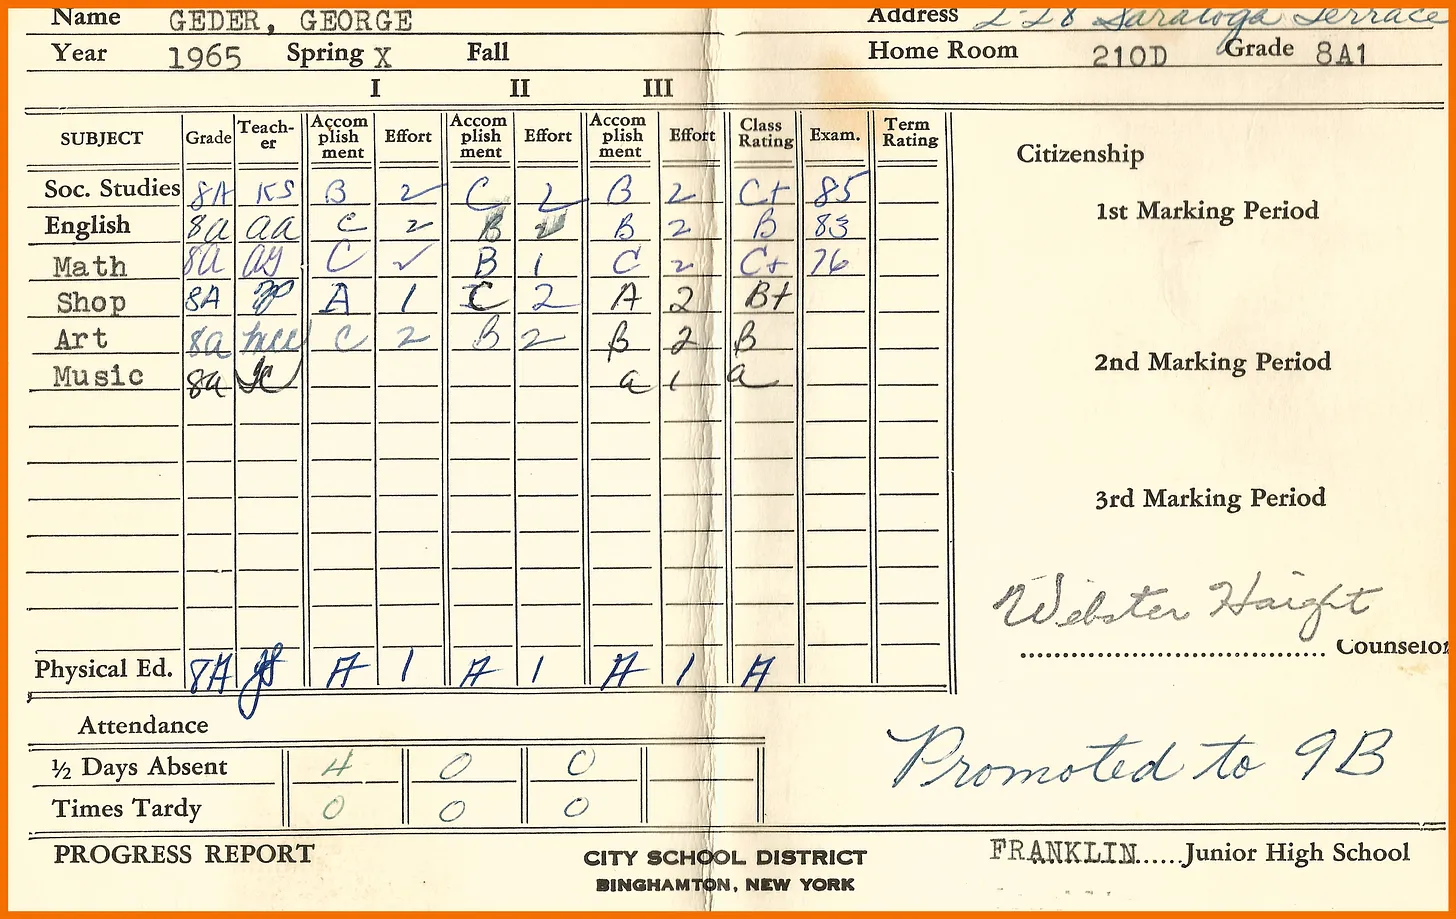 Name GEDER, GEORGE Address 2-28 Saratoga Terrace
Year 1965 Spring X Fall Home Room 210D Grade 8A1
I II III
SUBJECT Grade Teach-er Accom plish ment Effort Accom plish ment Effort Accom plish ment Effort Class Rating Exam. Term Rating
Citizenship
Soc. Studies 8A KS B 2 C 2 B 2 C+ 85
1st Marking Period
English 8a aa C 2 B 2 B 2 B 83
Math 8a ay C ✓ B 1 C 2 C+ 76
Shop 8A A 1 C 2 A 2 B+
Art 8a mcc C 2 B 2 B 2 B
2nd Marking Period
Music 8a a 1 a
3rd Marking Period
Webster Haight
Counselor
Physical Ed. 8A A 1 A 1 A 1 A
Attendance
Promoted to 9B
½ Days Absent 4 0 0
Times Tardy 0 0 0
PROGRESS REPORT CITY SCHOOL DISTRICT FRANKLIN......Junior High School
BINGHAMTON, NEW YORK